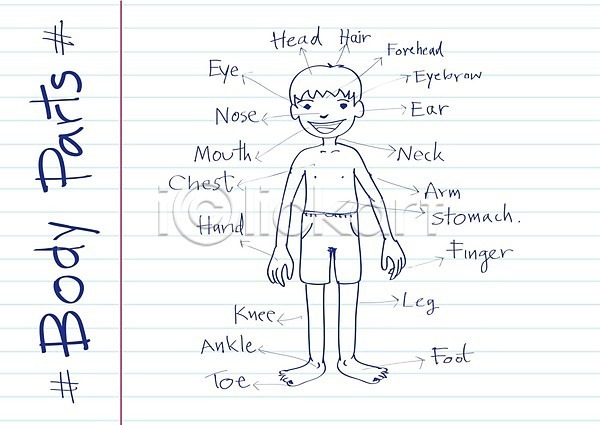 # Body Parts #
Head
Hair
Forehead
Eye
Eyebrow
Nose
Ear
Mouth
Neck
Chest
Arm
Stomach.
Hand
Finger
Leg
Knee
Ankle
Foot
Toe
iclickart